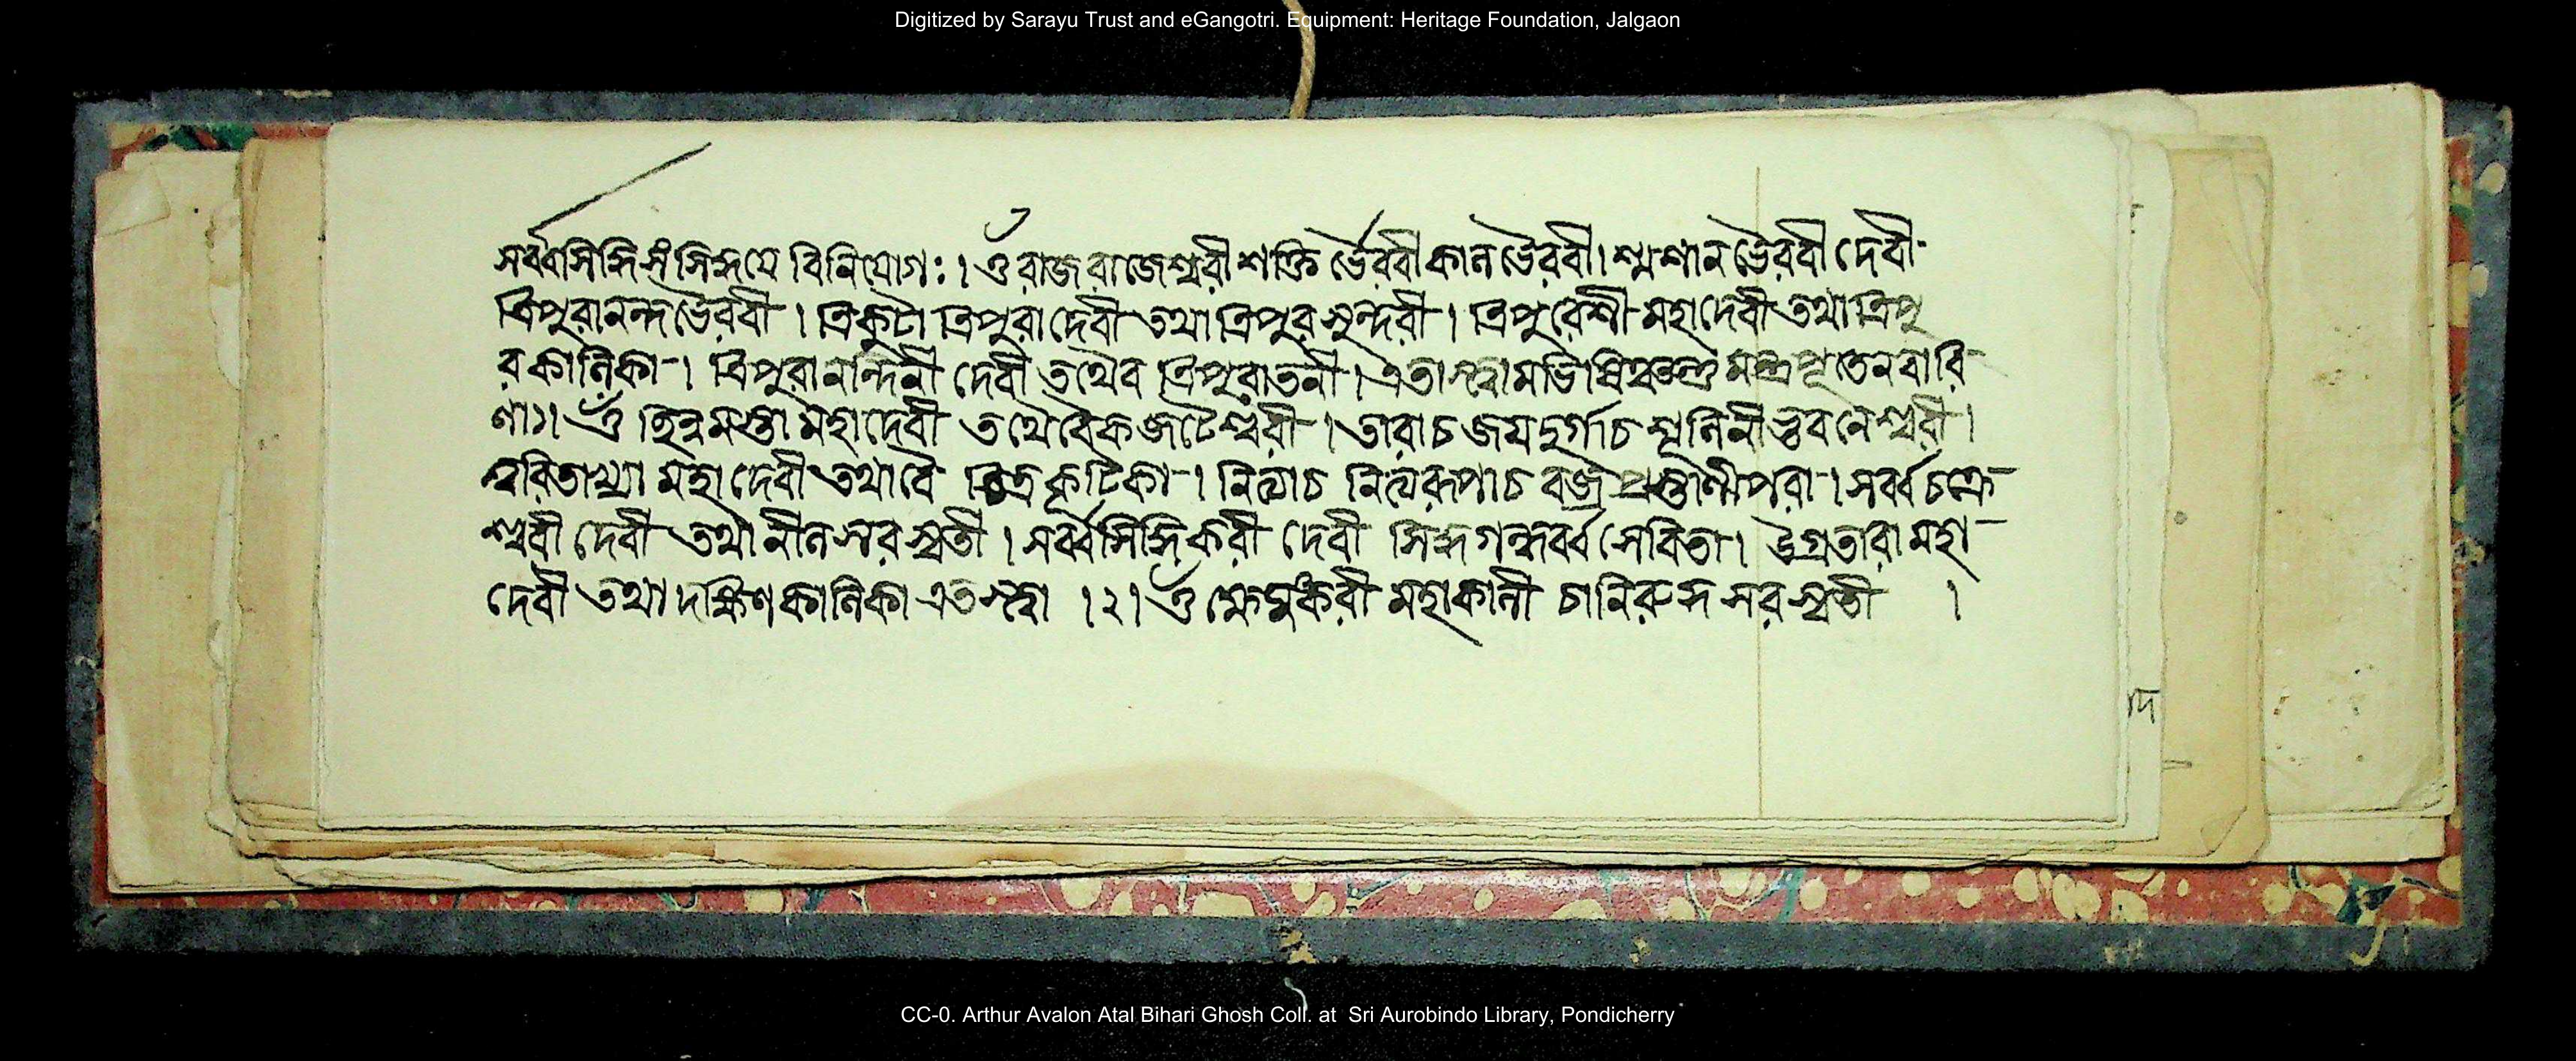 Digitized by Sarayu Trust and eGangotri. Equipment: Heritage Foundation, Jalgaon
সর্ব্বসিদ্ধিসংসিদ্ধয়ে বিনিয়োগঃ। ওঁ রাজরাজেশ্বরী শক্তি র্ভৈরবী কালভৈরবী। শ্মশানভৈরবী দেবী
ত্রিপুরানন্দভৈরবী। ত্রিকুটা ত্রিপুরাদেবী তথা ত্রিপুরসুন্দরী। ত্রিপুরেশী মহাদেবী তথা ত্রিপু
রকালিকা। ত্রিপুরানন্দিনী দেবী তথৈব ত্রিপুরাতনী। এতাস্ত্বামভিষিঞ্চন্তু মন্ত্রপূতেন বারি
ণা১। ওঁ ছিন্নমস্তা মহাদেবী তথৈবৈকজটেশ্বরী। তারাচ জয়দুর্গাচ শূলিনী ভুবনেশ্বরী।
ত্বরিতাখ্যা মহাদেবী তথাবৈ কূটিকা। নিত্যাচ নিত্যরূপাচ বজ্রপ্রস্তারিণীপরা। সর্ব্বচক্রে
শ্বরী দেবী তথা নীলসরস্বতী। সর্ব্বসিদ্ধিকরী দেবী সিদ্ধগন্ধর্ব্বসেবিতা। উগ্রতারা মহা
দেবী তথা দক্ষিণকালিকা এতস্ত্বা ।২। ওঁ ক্ষেমংকরী মহাকালী চানিরুদ্ধসরস্বতী ।
CC-0. Arthur Avalon Atal Bihari Ghosh Coll. at Sri Aurobindo Library, Pondicherry